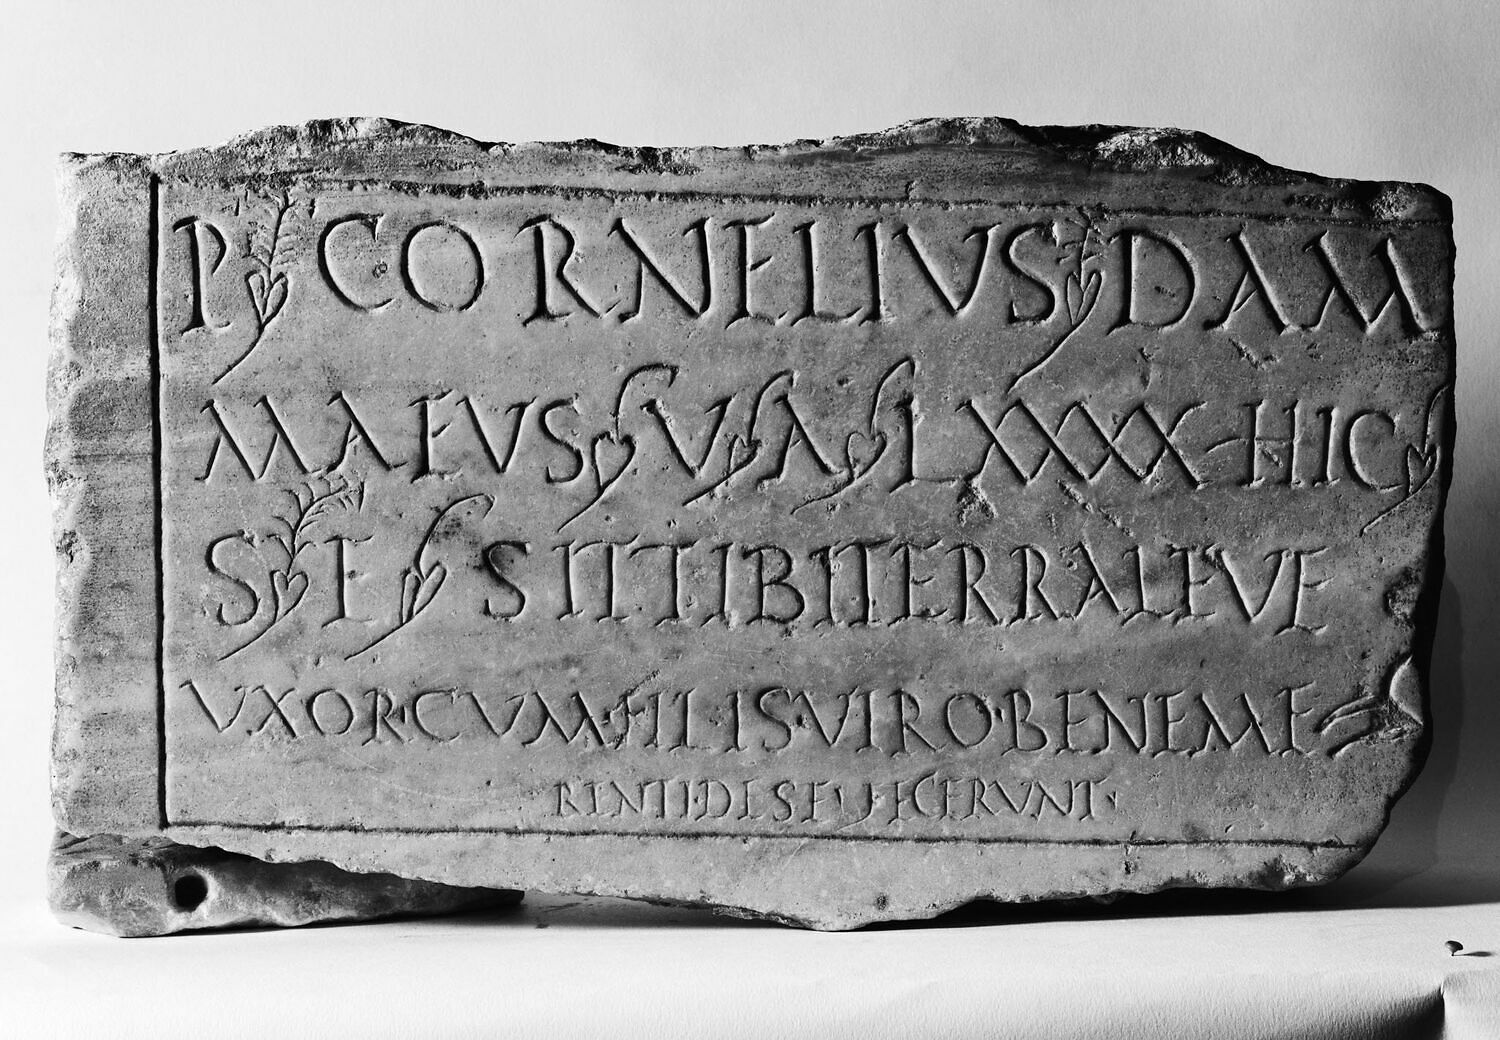 P CORNELIVS DAM
MAEVS V A LXXXX HIC
S E S IT TIBI TERRA LEVE
VXOR · CVM · FILIS · VIRO · BENEME
RENTI · DE SE FECERVNT ·